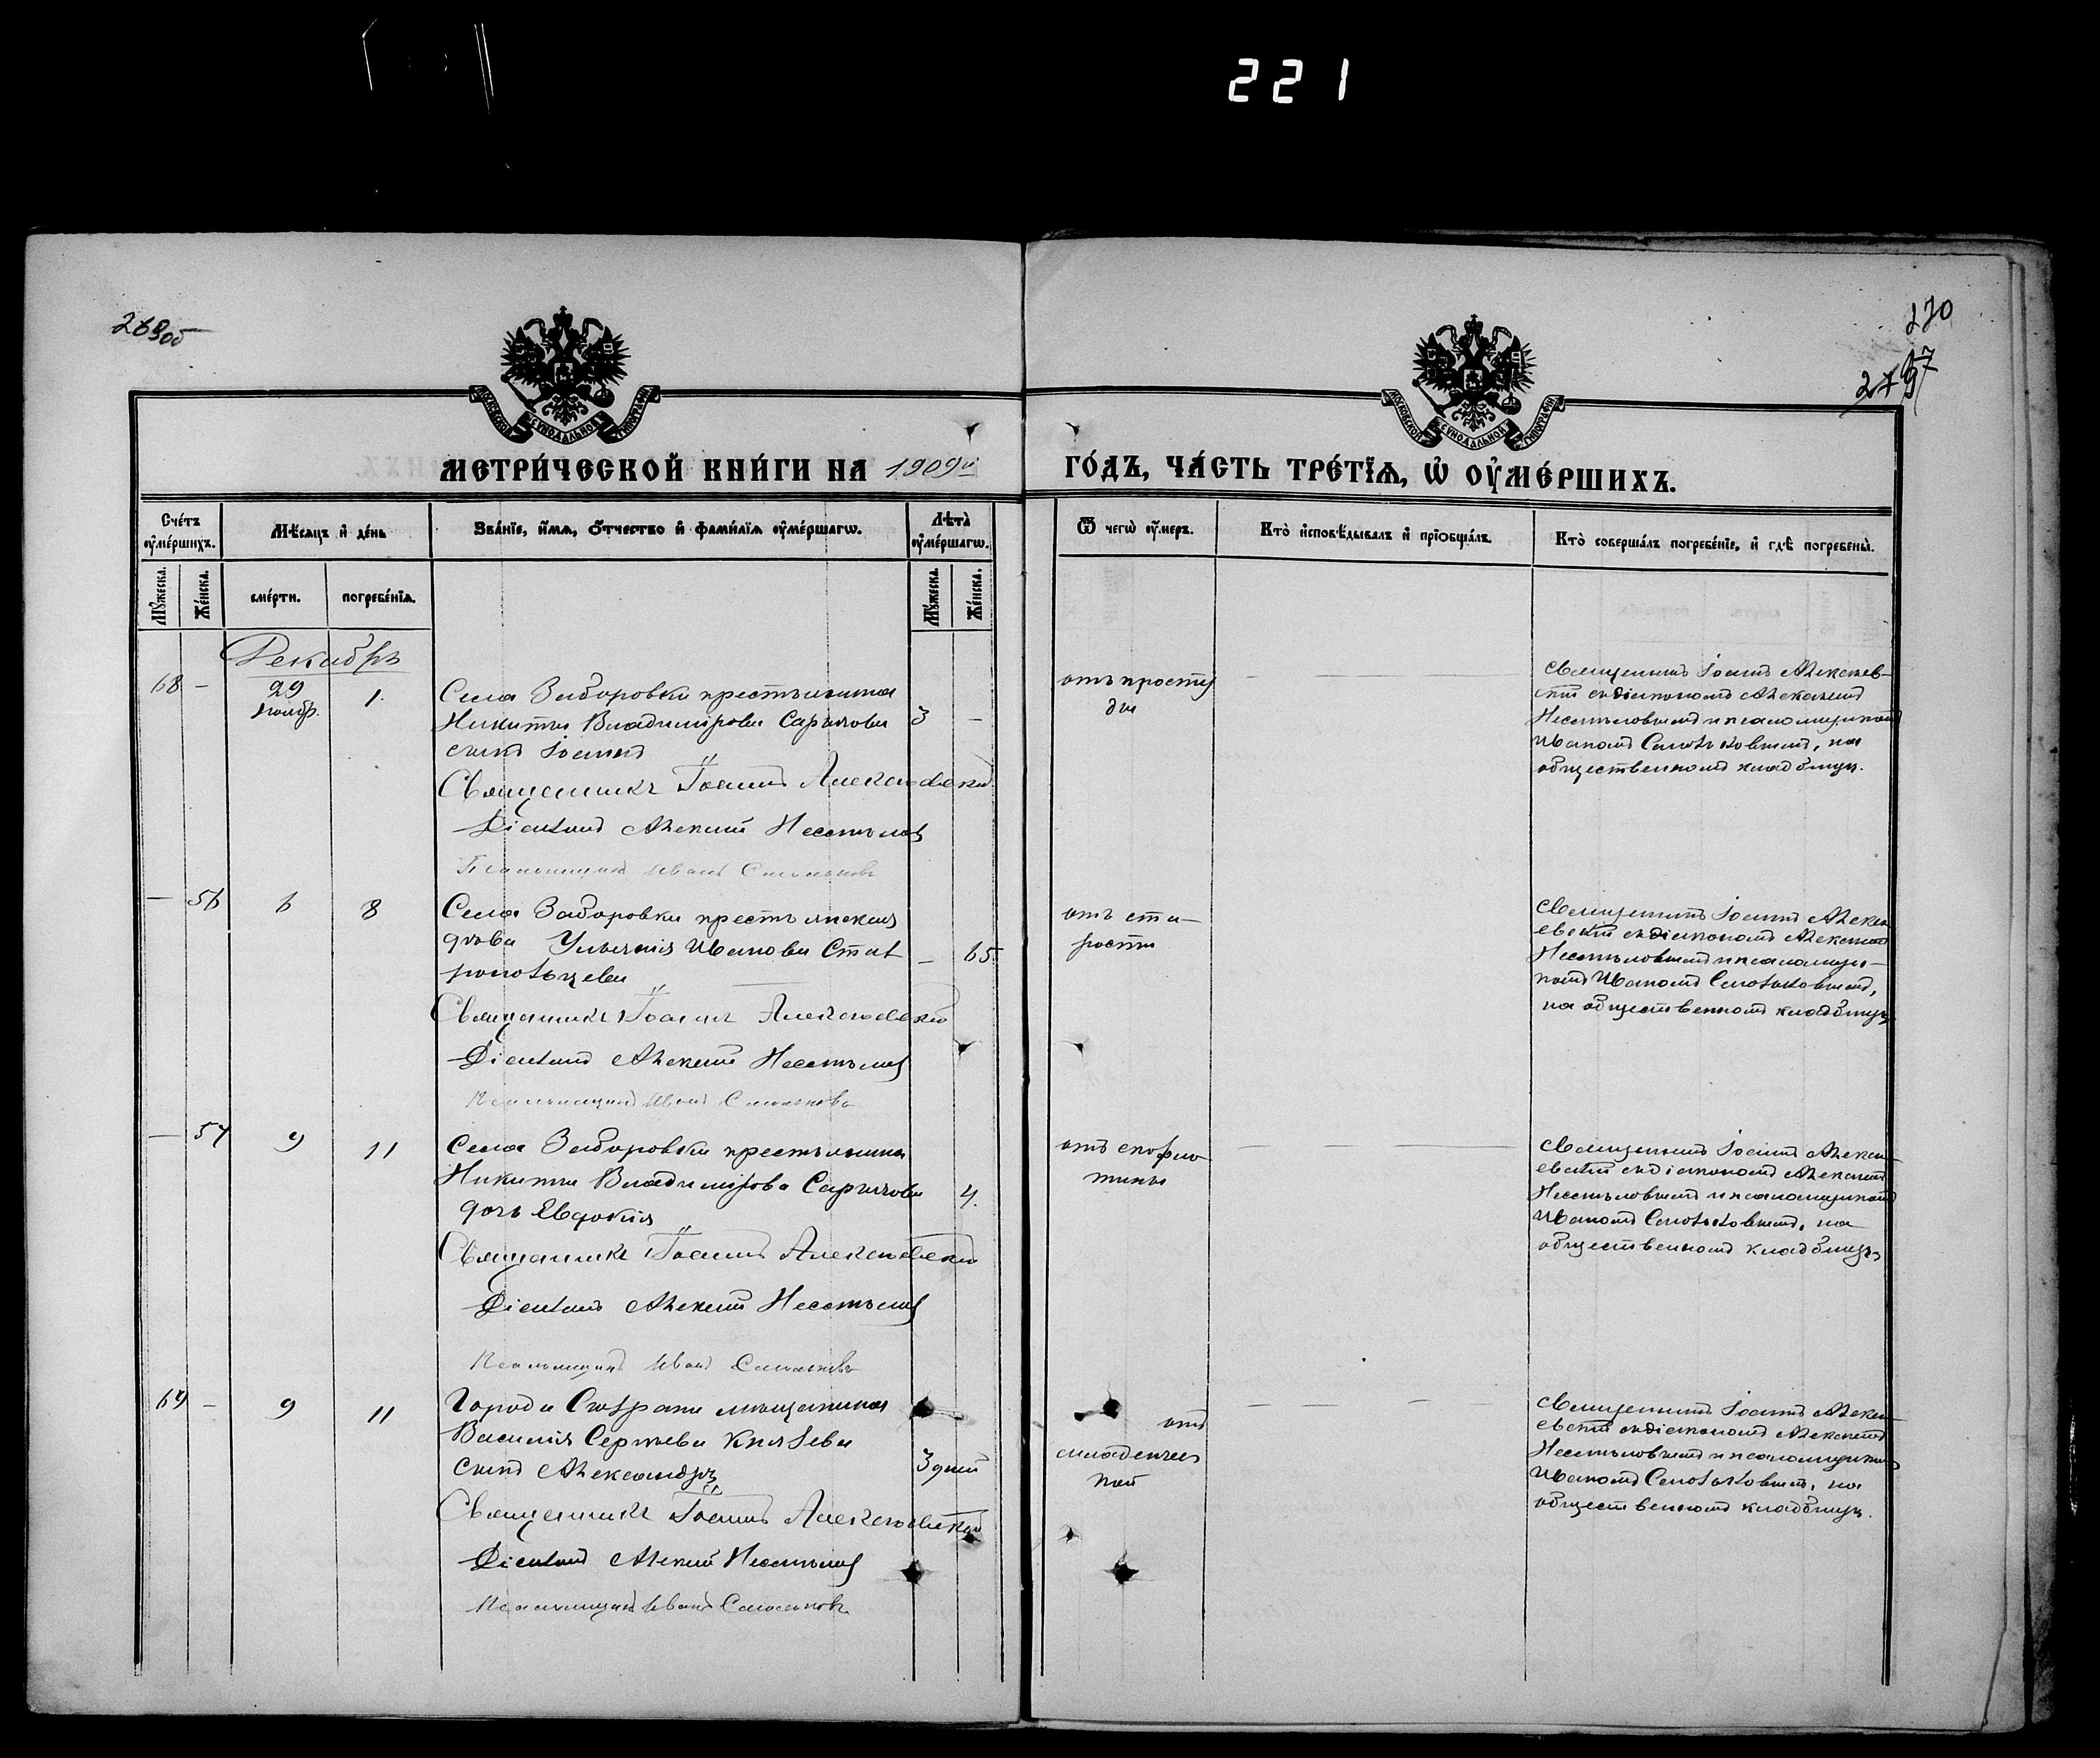 221
269об
270
МЕТРИ́ЧЕСКОЙ КНИ́ГИ НА 1909й
ГО́ДЪ, ЧА́СТЬ ТРЕ́ТЇѦ, Ѡ҆ ОУ҆МЕ́РШИХЪ.
Сче́тъ оу҆ме́ршихъ.
Мѣ́сѧцъ и҆ де́нь
Зва́нїе, и҆́мѧ, ѻ҆́тчество и҆ фами́лїѧ оу҆ме́ршагѡ.
Лѣ́та оу҆ме́ршагѡ.
Ѿ чегѡ̀ оу҆́меръ.
Кто̀ и҆сповѣ́дывалъ и҆ прїѡбща́лъ.
Кто̀ соверша́лъ погребе́нїе, и҆ гдѣ̀ погребены̀.
Мꙋ́жеска.
Же́нска.
сме́рти.
погребе́нїѧ.
Мꙋ́жеска.
Же́нска.
Декабрь
68 – 29 ноябр. 1.
Села Заборовки крестьянина
Никиты Владимірова Сарычова 3 –
сынъ Іоаннъ
Священникъ Іоаннъ Алексѣевскій
Діаконъ Алексій Несмѣловъ
Псаломщикъ Иванъ Смольковъ
отъ просту
ды
Священникъ Іоаннъ Алексѣев-
скій съ діакономъ Алексіемъ
Несмѣловымъ и псаломщикомъ
Иваномъ Смольковымъ, на
общественномъ кладбищѣ.
– 56 6 8
Села Заборовки крестьянская
дѣва Ульянія Иванова Став
ропольцева – 65
Священникъ Іоаннъ Алексѣевскій
Діаконъ Алексій Несмѣловъ
Псаломщикъ Иванъ Смольковъ
отъ ста-
рости
Священникъ Іоаннъ Алексѣ
евскій съ діакономъ Алексіемъ
Несмѣловымъ и псаломщи-
комъ Иваномъ Смольковымъ,
на общественномъ кладбищѣ
– 57 9 11
Села Заборовки крестьянина
Никиты Владимірова Сарычова 4.
дочь Евдокія
Священникъ Іоаннъ Алексѣевскій
Діаконъ Алексій Несмѣловъ
Псаломщикъ Иванъ Смольковъ
отъ скорла
тины
Священникъ Іоаннъ Алексѣ
евскій съ діакономъ Алексіемъ
Несмѣловымъ и псаломщикомъ
Иваномъ Смольковымъ, на
общественномъ кладбищѣ
69 – 9 11
Города Сызрани мѣщанина
Василія Сергѣева Князева
сынъ Александръ 3 дней
Священникъ Іоаннъ Алексѣевскій
Діаконъ Алексій Несмѣловъ
Псаломщикъ Иванъ Смольковъ
отъ
младенчес
кой
Священникъ Іоаннъ Алексѣ
евскій съ діакономъ Алексіемъ
Несмѣловымъ и псаломщикомъ
Иваномъ Смольковымъ, на
общественномъ кладбищѣ.